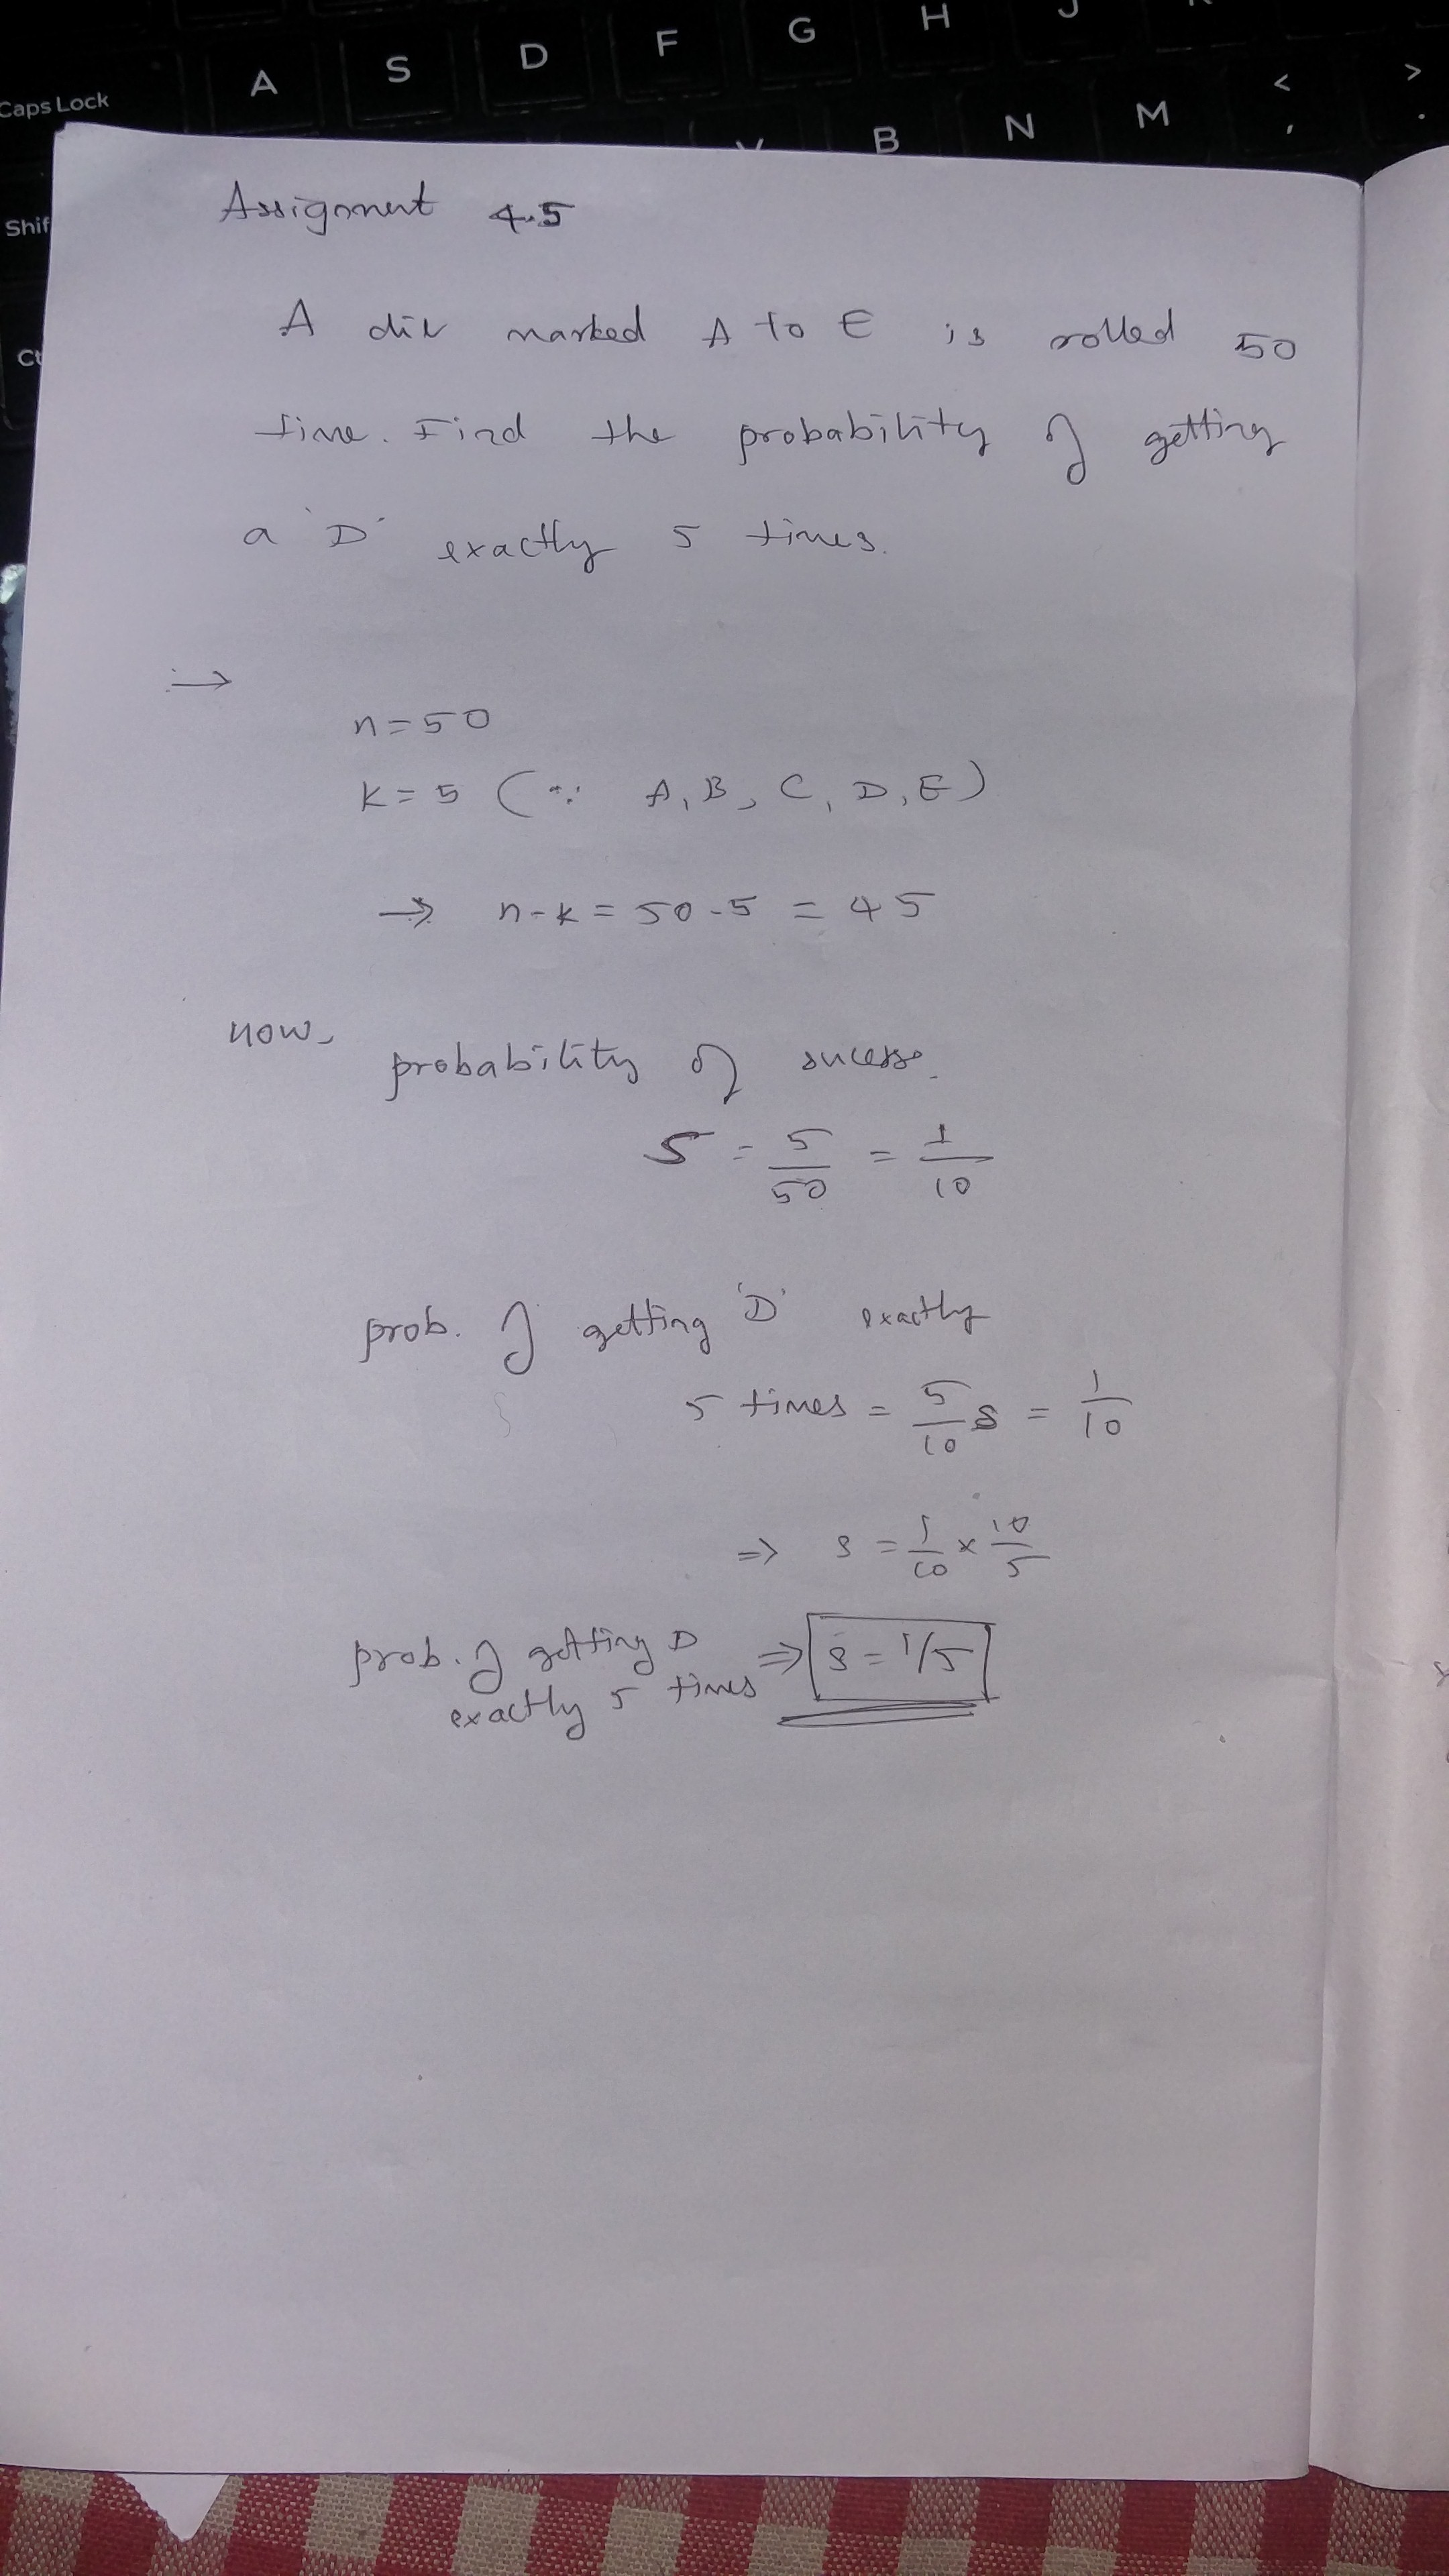 H J
A S D F G
Caps Lock
B N M < ,
> .
Shif
Assignment 4.5
A die marked A to E is rolled 50
time. Find the probability of getting
a 'D' exactly 5 times.
→
n = 50
k = 5 (∵ A, B, C, D, E)
→ n - k = 50 - 5 = 45
Now,
probability of sucess.
S = 5/50 = 1/10
prob. of getting 'D' exactly
5 times = 5/10 s = 1/10
⇒ s = 1/10 × 10/5
prob. of getting D ⇒ s = 1/5
exactly 5 times